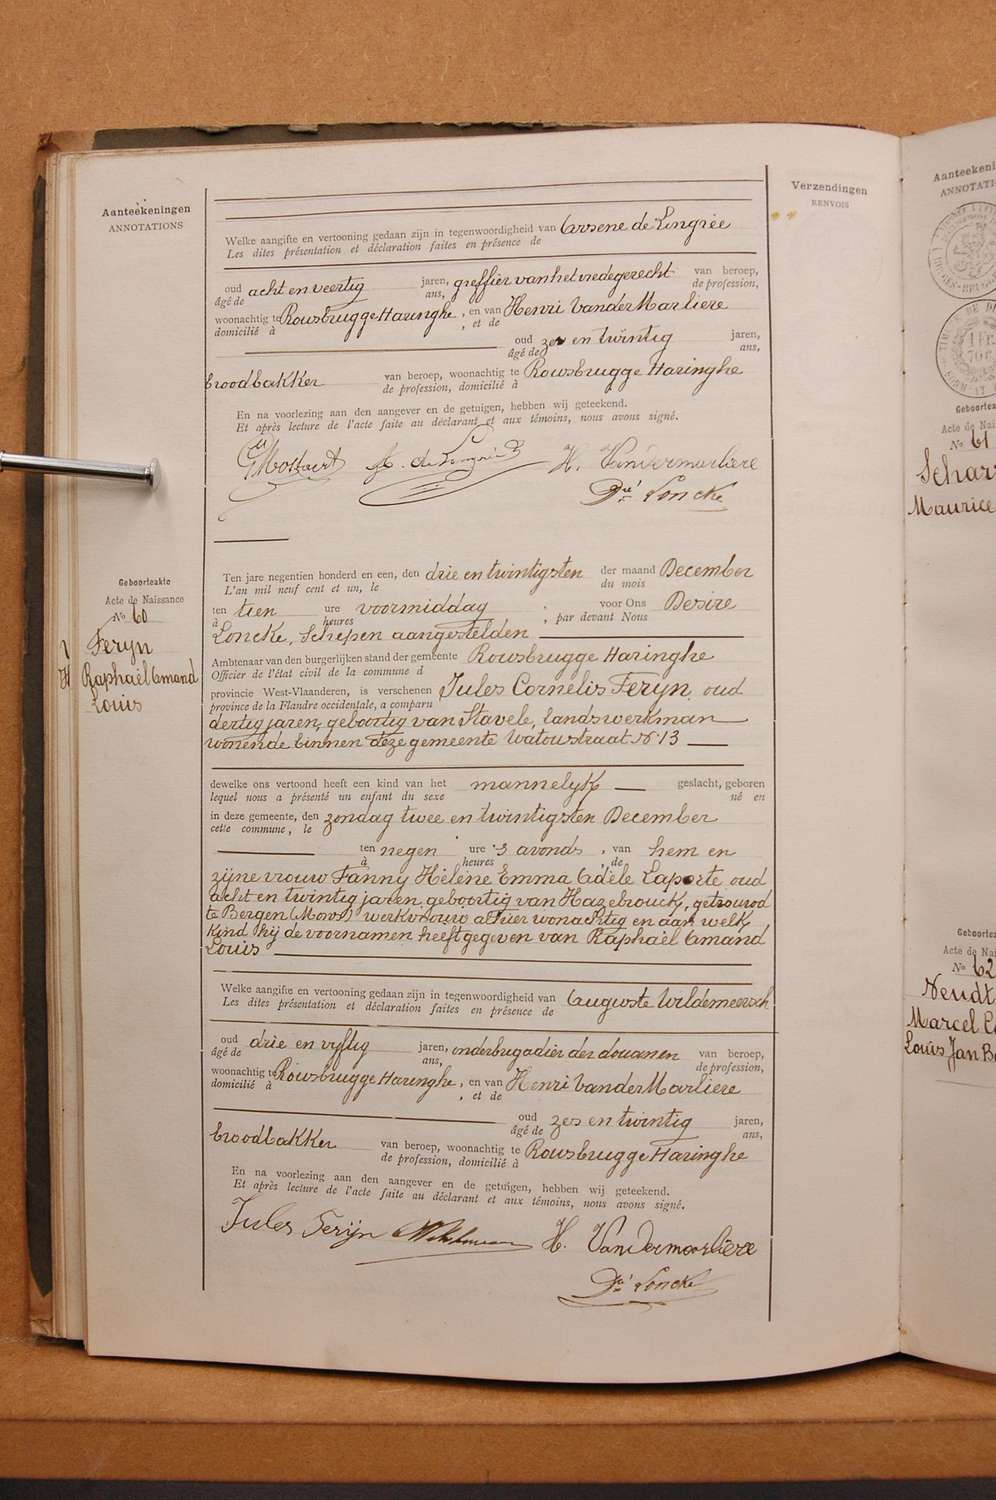 Aanteekeningen
ANNOTATIONS
Verzendingen
RENVOIS
Welke aangifte en vertooning gedaan zijn in tegenwoordigheid van Arsene de Lingrée
Les dites présentation et déclaration faites en présence de
oud acht en veertig jaren, greffier van het vredegerecht van beroep,
âgé de ans, de profession,
woonachtig te Rousbrugge Haringhe, en van Henri VanderMarliere
domicilié à , et de
oud zes en twintig jaren,
âgé de ans,
broodbakker van beroep, woonachtig te Rousbrugge Haringhe
de profession, domicilié à
En na voorlezing aan den aangever en de getuigen, hebben wij geteekend.
Et après lecture de l'acte faite au déclarant et aux témoins, nous avons signé.
H. Vandermarliere
Dre Loncke
Geboorteakte
Acte de Naissance
No 60
Feryn
Raphaël Amand
Louis
Ten jare negentien honderd en een, den drie en twintigsten der maand December
L'an mil neuf cent et un, le du mois
ten tien ure voormiddag ; voor Ons Desire
à heures , par devant Nous
Loncke, Schepen aangestelden
Ambtenaar van den burgerlijken stand der gemeente Rousbrugge Haringhe
Officier de l'état civil de la commune d
provincie West-Vlaanderen, is verschenen Jules Cornelis Feryn, oud
province de la Flandre occidentale, a comparu
dertig jaren, geboortig van Stavele, landswerkman
wonende binnen deze gemeente Watoustraat No 13
dewelke ons vertoond heeft een kind van het mannelyk geslacht, geboren
lequel nous a présenté un enfant du sexe né en
in deze gemeente, den zondag twee en twintigsten December
cette commune, le
ten negen ure 's avonds , van hem en
à heures , de
zijne vrouw Fanny Hélène Emma Adèle Laporte oud
acht en twintig jaren, geboortig van Hazebrouck, getrouwd
te Bergen (Mons) werkvrouw alhier wonachtig en aan welk
kind hij de voornamen heeft gegeven van Raphaël Amand
Louis
Welke aangifte en vertooning gedaan zijn in tegenwoordigheid van Auguste Wildemeersch
Les dites présentation et déclaration faites en présence de
oud drie en vyftig jaren, onderbrigadier der douanen van beroep,
âgé de ans, de profession,
woonachtig te Rousbrugge Haringhe, en van Henri VanderMarliere
domicilié à , et de
oud zes en twintig jaren,
âgé de ans,
broodbakker van beroep, woonachtig te Rousbrugge Haringhe
de profession, domicilié à
En na voorlezing aan den aangever en de getuigen, hebben wij geteekend.
Et après lecture de l'acte faite au déclarant et aux témoins, nous avons signé.
Jules Feryn H. Vandermarlière
Dre Loncke
Aanteekeni
ANNOTATI
Geboorte
Acte de Nai
No 61
Schar
Maurice
Geboorte
Acte de Nai
No 62
Nendt
Marcel C
Louis Jan B